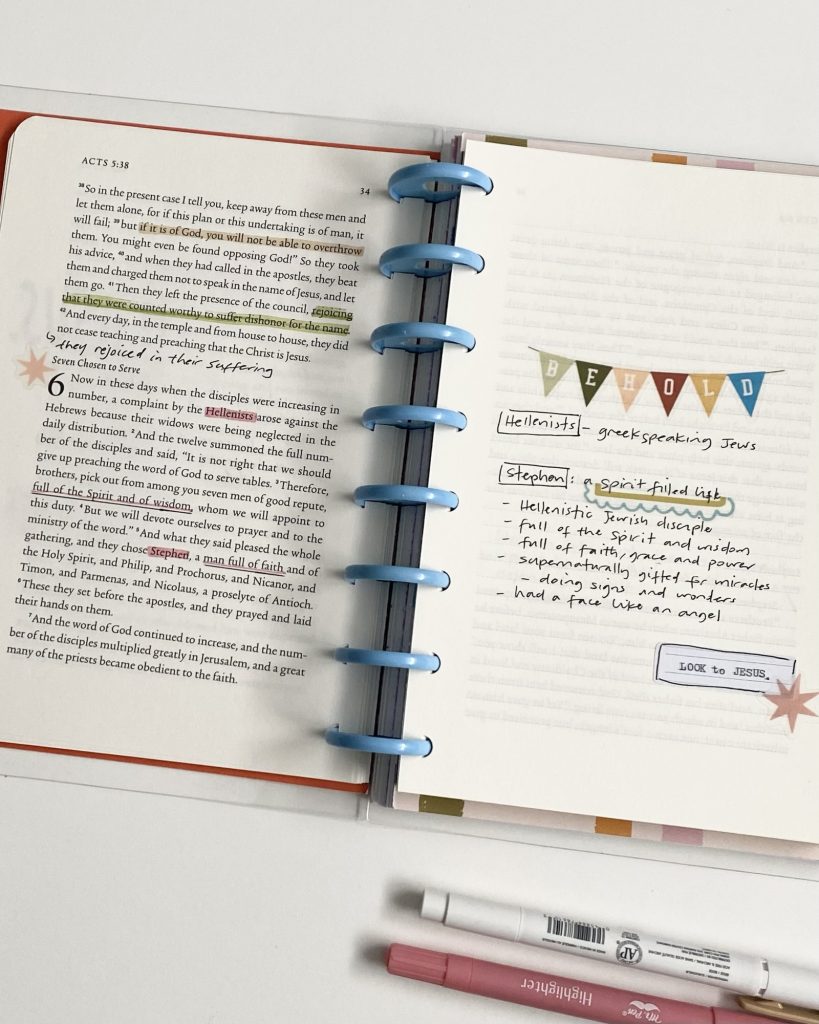 ACTS 5:38
34
³⁸So in the present case I tell you, keep away from these men and
let them alone, for if this plan or this undertaking is of man, it
will fail; ³⁹but if it is of God, you will not be able to overthrow
them. You might even be found opposing God!” So they took
his advice, ⁴⁰and when they had called in the apostles, they beat
them and charged them not to speak in the name of Jesus, and let
them go. ⁴¹Then they left the presence of the council, rejoicing
that they were counted worthy to suffer dishonor for the name.
⁴²And every day, in the temple and from house to house, they did
not cease teaching and preaching that the Christ is Jesus.
they rejoiced in their suffering
Seven Chosen to Serve
6 Now in these days when the disciples were increasing in
number, a complaint by the Hellenists arose against the
Hebrews because their widows were being neglected in the
daily distribution. ²And the twelve summoned the full num-
ber of the disciples and said, “It is not right that we should
give up preaching the word of God to serve tables. ³Therefore,
brothers, pick out from among you seven men of good repute,
full of the Spirit and of wisdom, whom we will appoint to
this duty. ⁴But we will devote ourselves to prayer and to the
ministry of the word.” ⁵And what they said pleased the whole
gathering, and they chose Stephen, a man full of faith and of
the Holy Spirit, and Philip, and Prochorus, and Nicanor, and
Timon, and Parmenas, and Nicolaus, a proselyte of Antioch.
⁶These they set before the apostles, and they prayed and laid
their hands on them.
⁷And the word of God continued to increase, and the num-
ber of the disciples multiplied greatly in Jerusalem, and a great
many of the priests became obedient to the faith.
BEHOLD
Hellenists - greek speaking Jews
Stephen: a spirit filled life
- Hellenistic Jewish disciple
- full of the spirit and wisdom
- full of faith, grace and power
- supernaturally gifted for miracles
- doing signs and wonders
- had a face like an angel
LOOK to JESUS.
AP
Highlighter
Mr. Pen